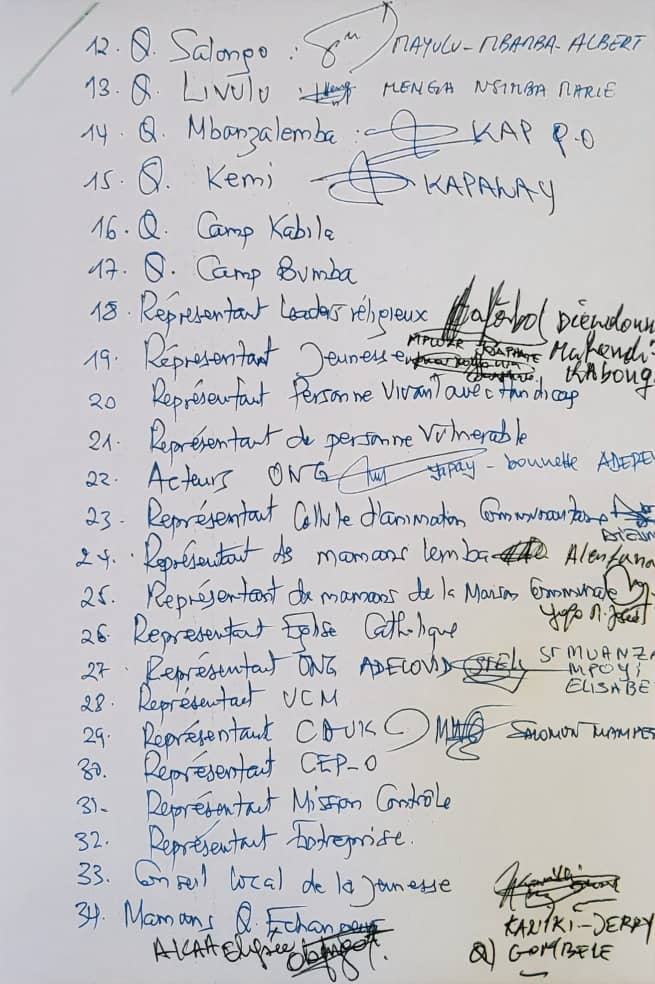 12. Q. Salongo : MAYULU-MBAMBA-ALBERT
13. Q. LIVULU : MENGA NSIMBA MARIE
14. Q. Mbanzalemba : KAP P.O
15. Q. Kemi KAPANAY
16. Q. Camp Kabila
17. Q. Camp Bumba
18. Réprésentant Leaders réligieux Dieudonn
19. Réprésentant Jeunesse
20 Réprésentant Personne Vivant avec Handicap
21. Réprésentant de personne Vulnerable
22. Acteurs ONG
23. Réprésentant Cellule d'animation
24. Réprésentant de mamans lemba
25. Réprésentant de mamans de la Maison Communale
26 Représentant Eglise Catholique
27 Réprésentant ONG ADECOVID St MUANZA
MPOYI
ELISABE
28 Réprésentant UCM
29. Réprésentant SALOMON MAMPE
30. Réprésentant CEP-O
31- Réprésentant Mission Contrôle
32. Réprésentant Entreprise.
33. Conseil local de la jeunesse
34. Mamans Q. Echangeur
KANIKI-JERRY
Q) GOMBELE